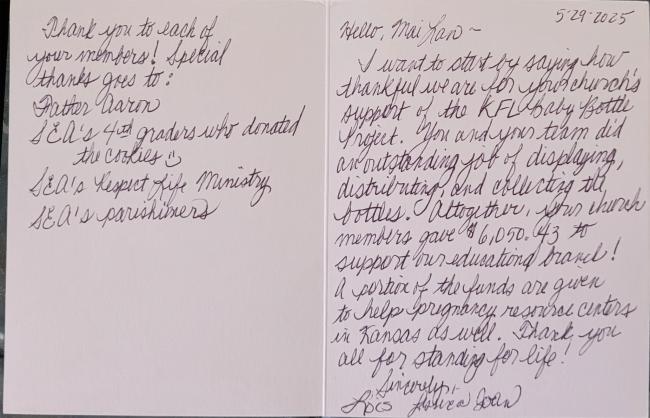 Thank you to each of
your members! Special
thanks goes to:
Father Aaron
SEA's 4th graders who donated
the cookies
SEA's Respect Life Ministry
SEA's parishioners
5-29-2025
Hello, Mai Lan ~
I want to start by saying how
thankful we are for your church's
support of the KFL Baby Bottle
Project. You and your team did
an outstanding job of displaying,
distributing, and collecting the
bottles. Altogether, your church
members gave $6,050.43 to
support our educational brand!
A portion of the funds are given
to help pregnancy resource centers
in Kansas as well. Thank you
all for standing for life!
Sincerely,